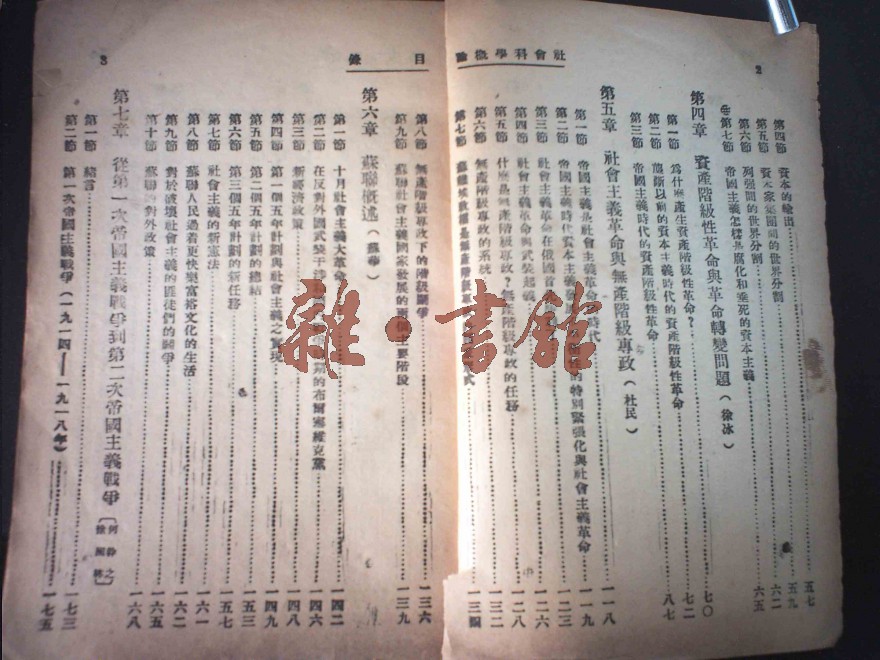 社會科學概論
2
第四節 資本的輸出 五七
第五節 資本家集團間的世界分割 五九
第六節 列强間的世界分割 六二
第七節 帝國主義怎樣是腐化和垂死的資本主義 六五
第四章 資產階級性革命與革命轉變問題(徐冰) 七〇
第一節 爲什麽產生資產階級性革命? 七二
第二節 以前的資本主義時代的資產階級性革命
第三節 帝國主義時代的資產階級性革命 八七
第五章 社會主義革命與無產階級專政(杜民) 一一八
第一節 帝國主義是社會主義革命 時代 一一九
第二節 帝國主義時代資本主義發展 的特別緊張化與社會主義革命 一二三
第三節 社會主義革命在俄國首 一二六
第四節 社會主義革命與武裝起義 一二八
第五節 什麽是無產階級專政?無產階級專政的任務 一三二
第六節 無產階級專政的系統 一三四
第七節
目錄
3
第八節 無產階級專政下的階級鬭爭 一三六
第九節 蘇聯社會主義國家發展的兩個主要階段 一三九
第六章 蘇聯概述
第一節 十月社會主義大革命 一四二
第二節 在反對外國武裝干涉 的布爾塞維克黨 一四六
第三節 新經濟政策 一四八
第四節 第一個五年計劃與社會主義之實現 一四九
第五節 第二個五年計劃的總結
第六節 第三個五年計劃的新任務 一五七
第七節 社會主義的新憲法 一六一
第八節 蘇聯人民過着更快樂富裕文化的生活 一六二
第九節 對於破壞社會主義的匪徒們的鬭爭 一六五
第十節 蘇聯的對外政策 一六八
第七章 從第一次帝國主義戰爭到第二次帝國主義戰爭
第一節 緒言 一七三
第二節 第一次帝國主義戰爭(一九一四—一九一八年) 一七五
雜·書館